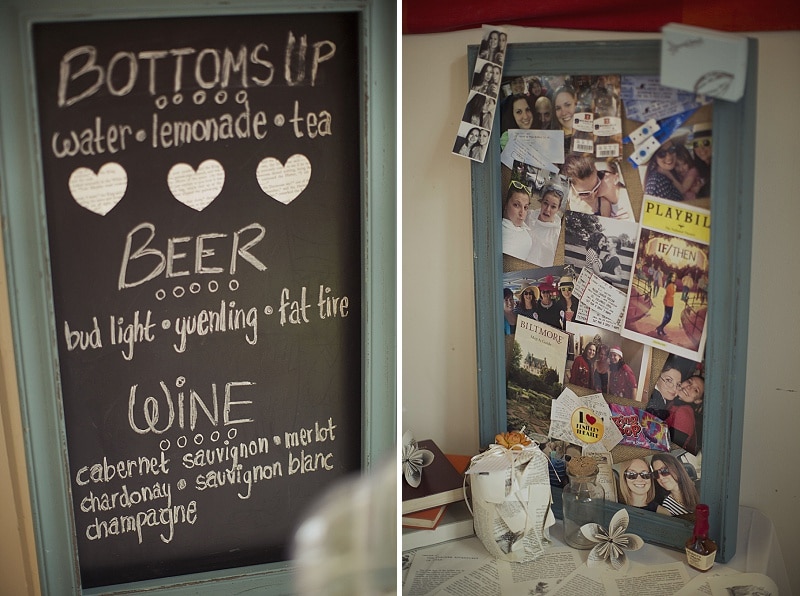 BOTTOMS UP
water • lemonade • tea
BEER
bud light • yuenling • fat tire
WINE
cabernet sauvignon • merlot
chardonay • sauvignon blanc
champagne
PLAYBIL
IF/THEN
BILTMORE
I ♥
THEATRE